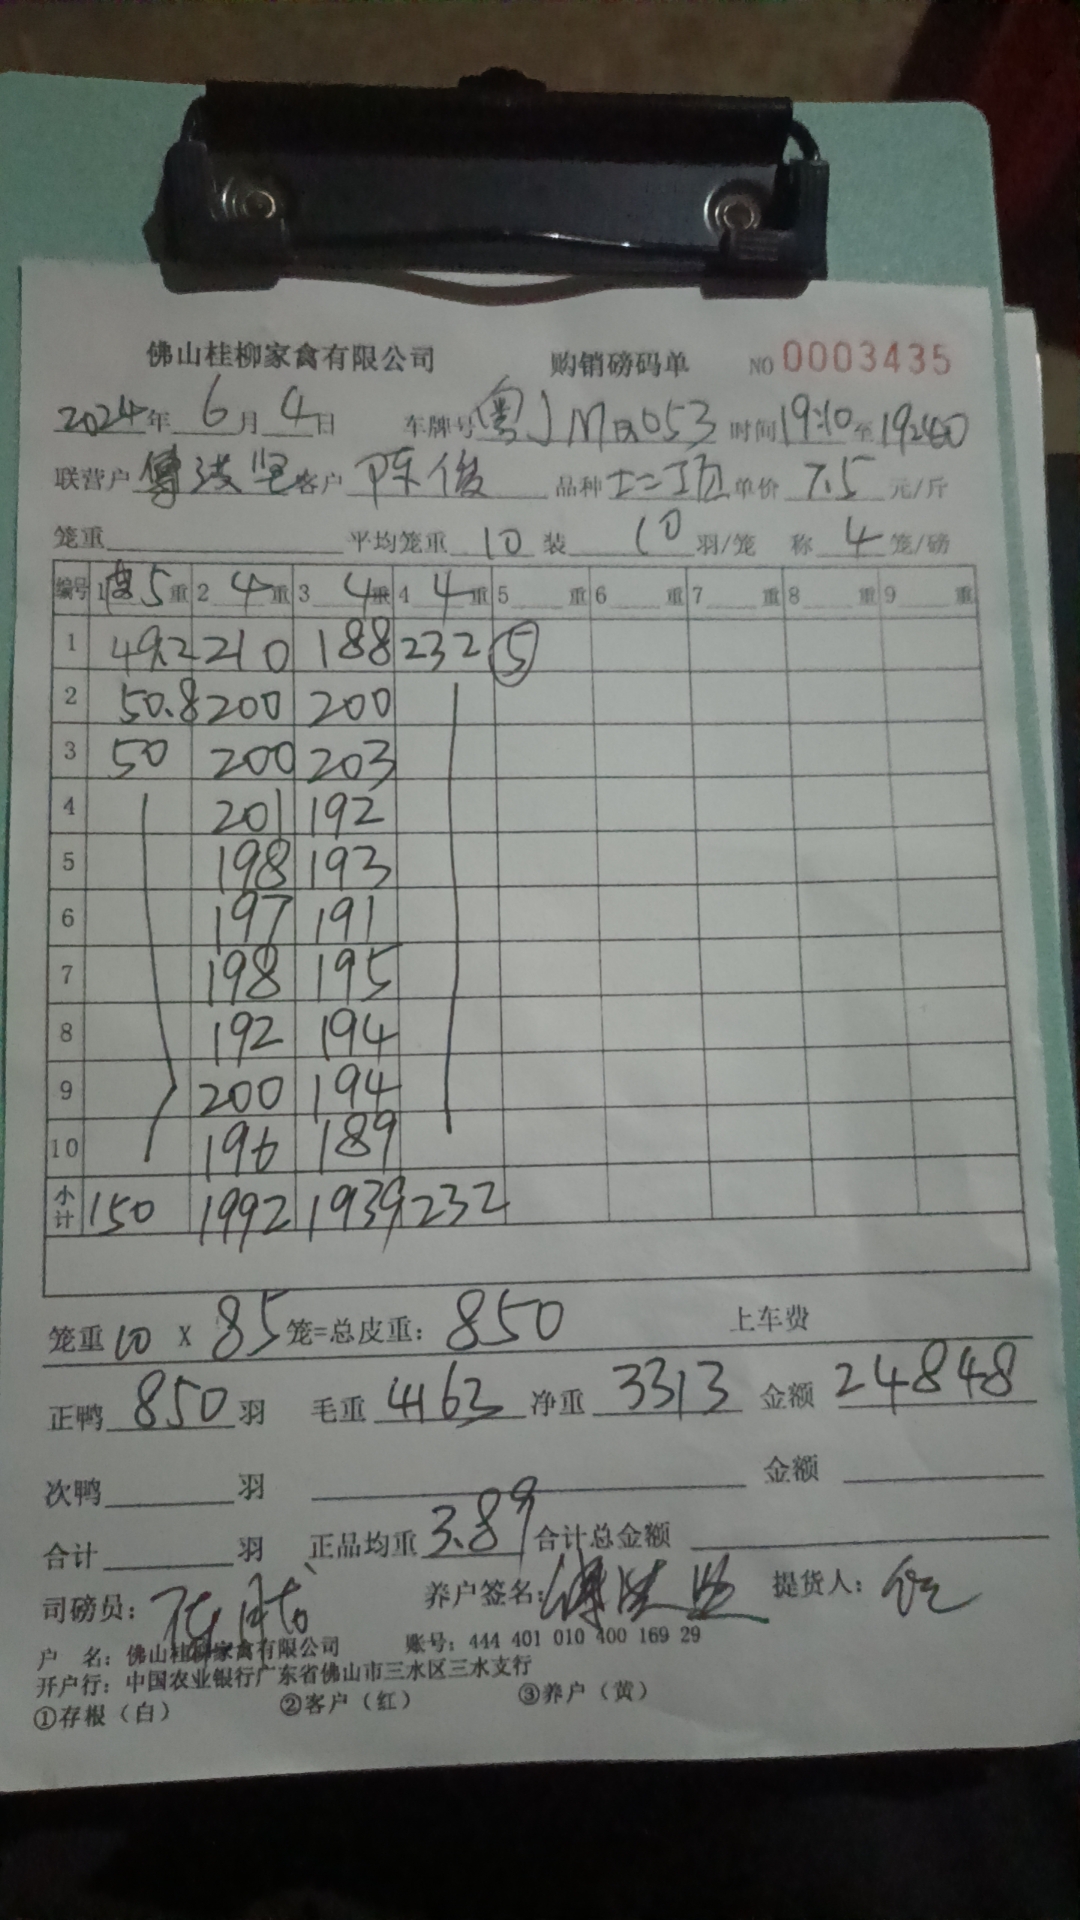 佛山桂柳家禽有限公司 购销磅码单 NO 0003435
2024年 6 月 4 日 车牌号 粤J 053 时间 19:10 至 19:40
联营户 傅洪坚 客户 陈俊 品种 单价 7.5 元/斤
笼重 平均笼重 10 装 10 羽/笼 称 4 笼/磅
编号 1 5 重 2 4 重 3 4 重 4 4 重 5 重 6 重 7 重 8 重 9 重
1 49.2 210 188 232 ⑤
2 50.8 200 200
3 50 200 203
4 201 192
5 198 193
6 197 191
7 198 195
8 192 194
9 200 194
10 196 189
小计 150 1992 1939 232
笼重 10 X 85 笼=总皮重: 850 上车费
正鸭 850 羽 毛重 4163 净重 3313 金额 24848
次鸭 羽 金额
合计 羽 正品均重 3.89 合计总金额
司磅员: 养户签名: 傅洪坚 提货人:
户 名: 佛山桂柳家禽有限公司 账号: 444 401 010 400 169 29
开户行: 中国农业银行广东省佛山市三水区三水支行
①存根（白） ②客户（红） ③养户（黄）